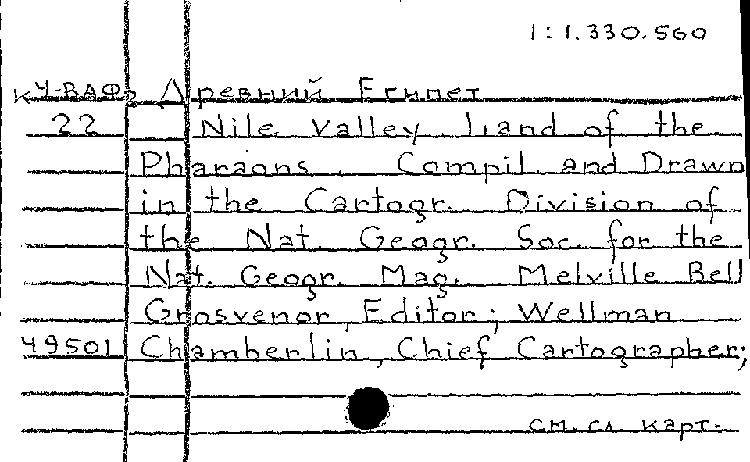 1:1.330.560
КУ-ВАФ Древний Египет
22 Nile Valley land of the
Pharaons. Compil. and Drawn
in the Cartogr. Division of
the Nat. Geogr. Soc. for the
Nat. Geogr. Mag. Melville Bell
Grosvenor, Editor; Wellman
49501 Chamberlin, Chief Cartographer;
см. сл. карт.